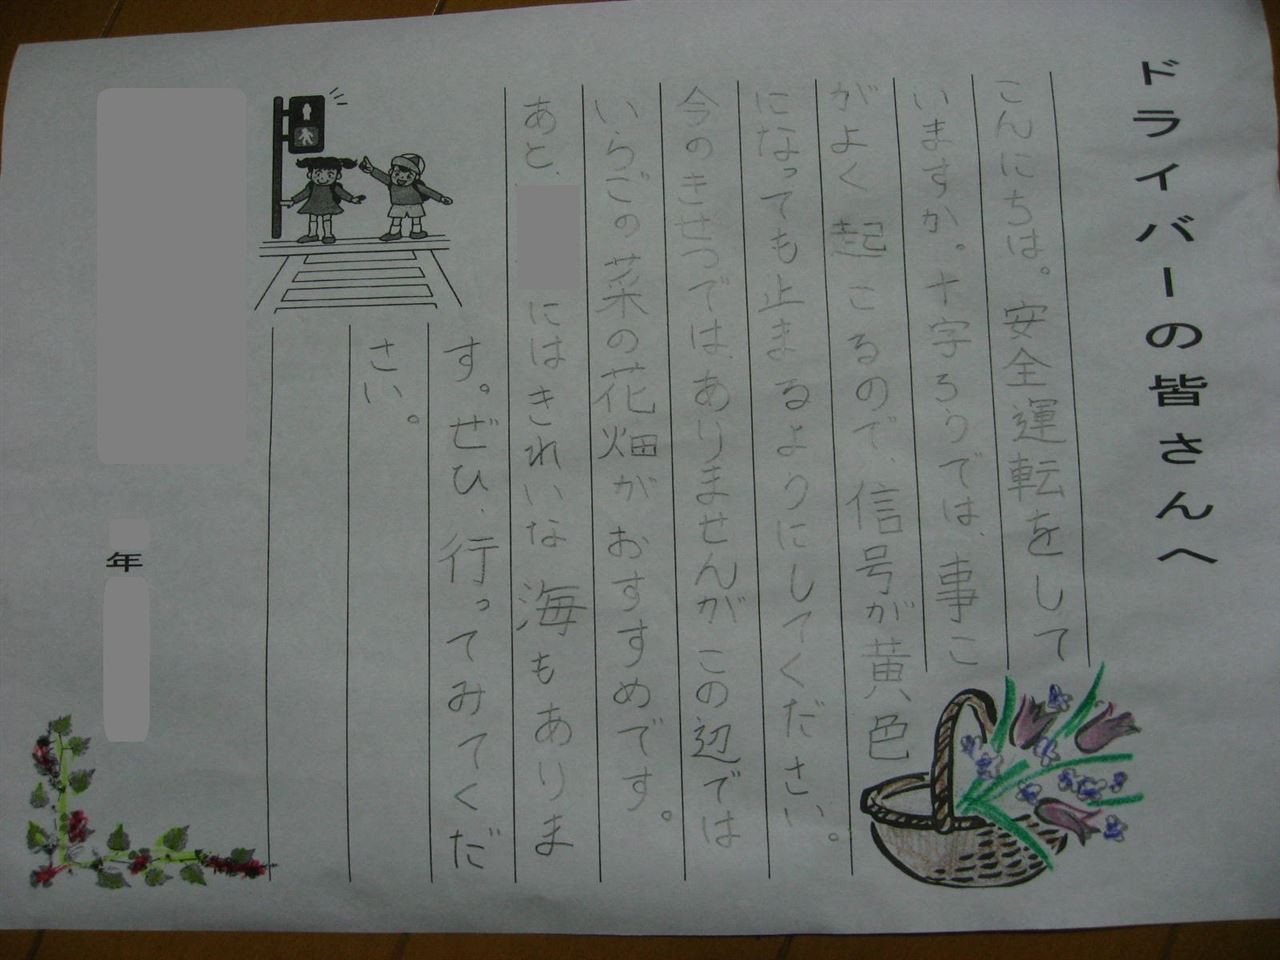 ドライバーの皆さんへ
こんにちは。安全運転をして
いますか。十字ろうでは、事こ
がよく起こるので、信号が黄色
になっても止まるようにしてください。
今のきせつではありませんがこの辺では
いらごの菜の花畑がおすすめです。
あと、
にはきれいな海もありま
す。ぜひ、行ってみてくだ
さい。
年